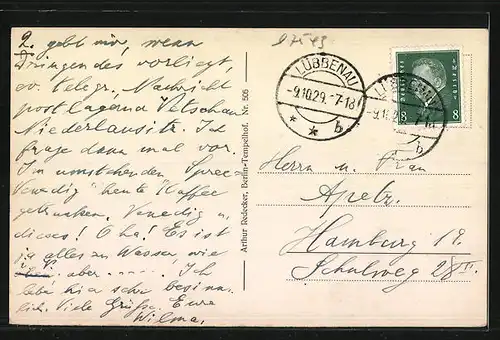 2. gebt mir, wenn
Dringendes vorliegt,
ev. telegr. Nachricht
postlagernd Vetschau
Niederlausitz. Ich
frage dann mal vor.
Im umstehenden "Spree-
Venedig" heute Kaffee
getrunken. Venedig u.
dieses! Oha! Es ist
ja alles zu Wasser, wie
aber ..... Ich
lebe hier sehr besinn-
lich. Viele Grüße. Eure
Wilma.
Arthur Redecker, Berlin-Tempelhof. Nr. 505
LÜBBENAU
-9.10.29.-7-18
* * b
LÜBBENAU
b
DEUTSCHES REICH
8 8
Herrn u. Frau
Apetz.
Hamburg 19.
Schulweg 28 III.